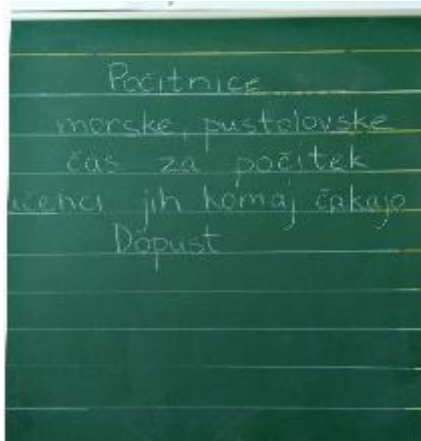 Počitnice
morske, pustolovske
čas za počitek
učenci jih komaj čakajo
Dopust